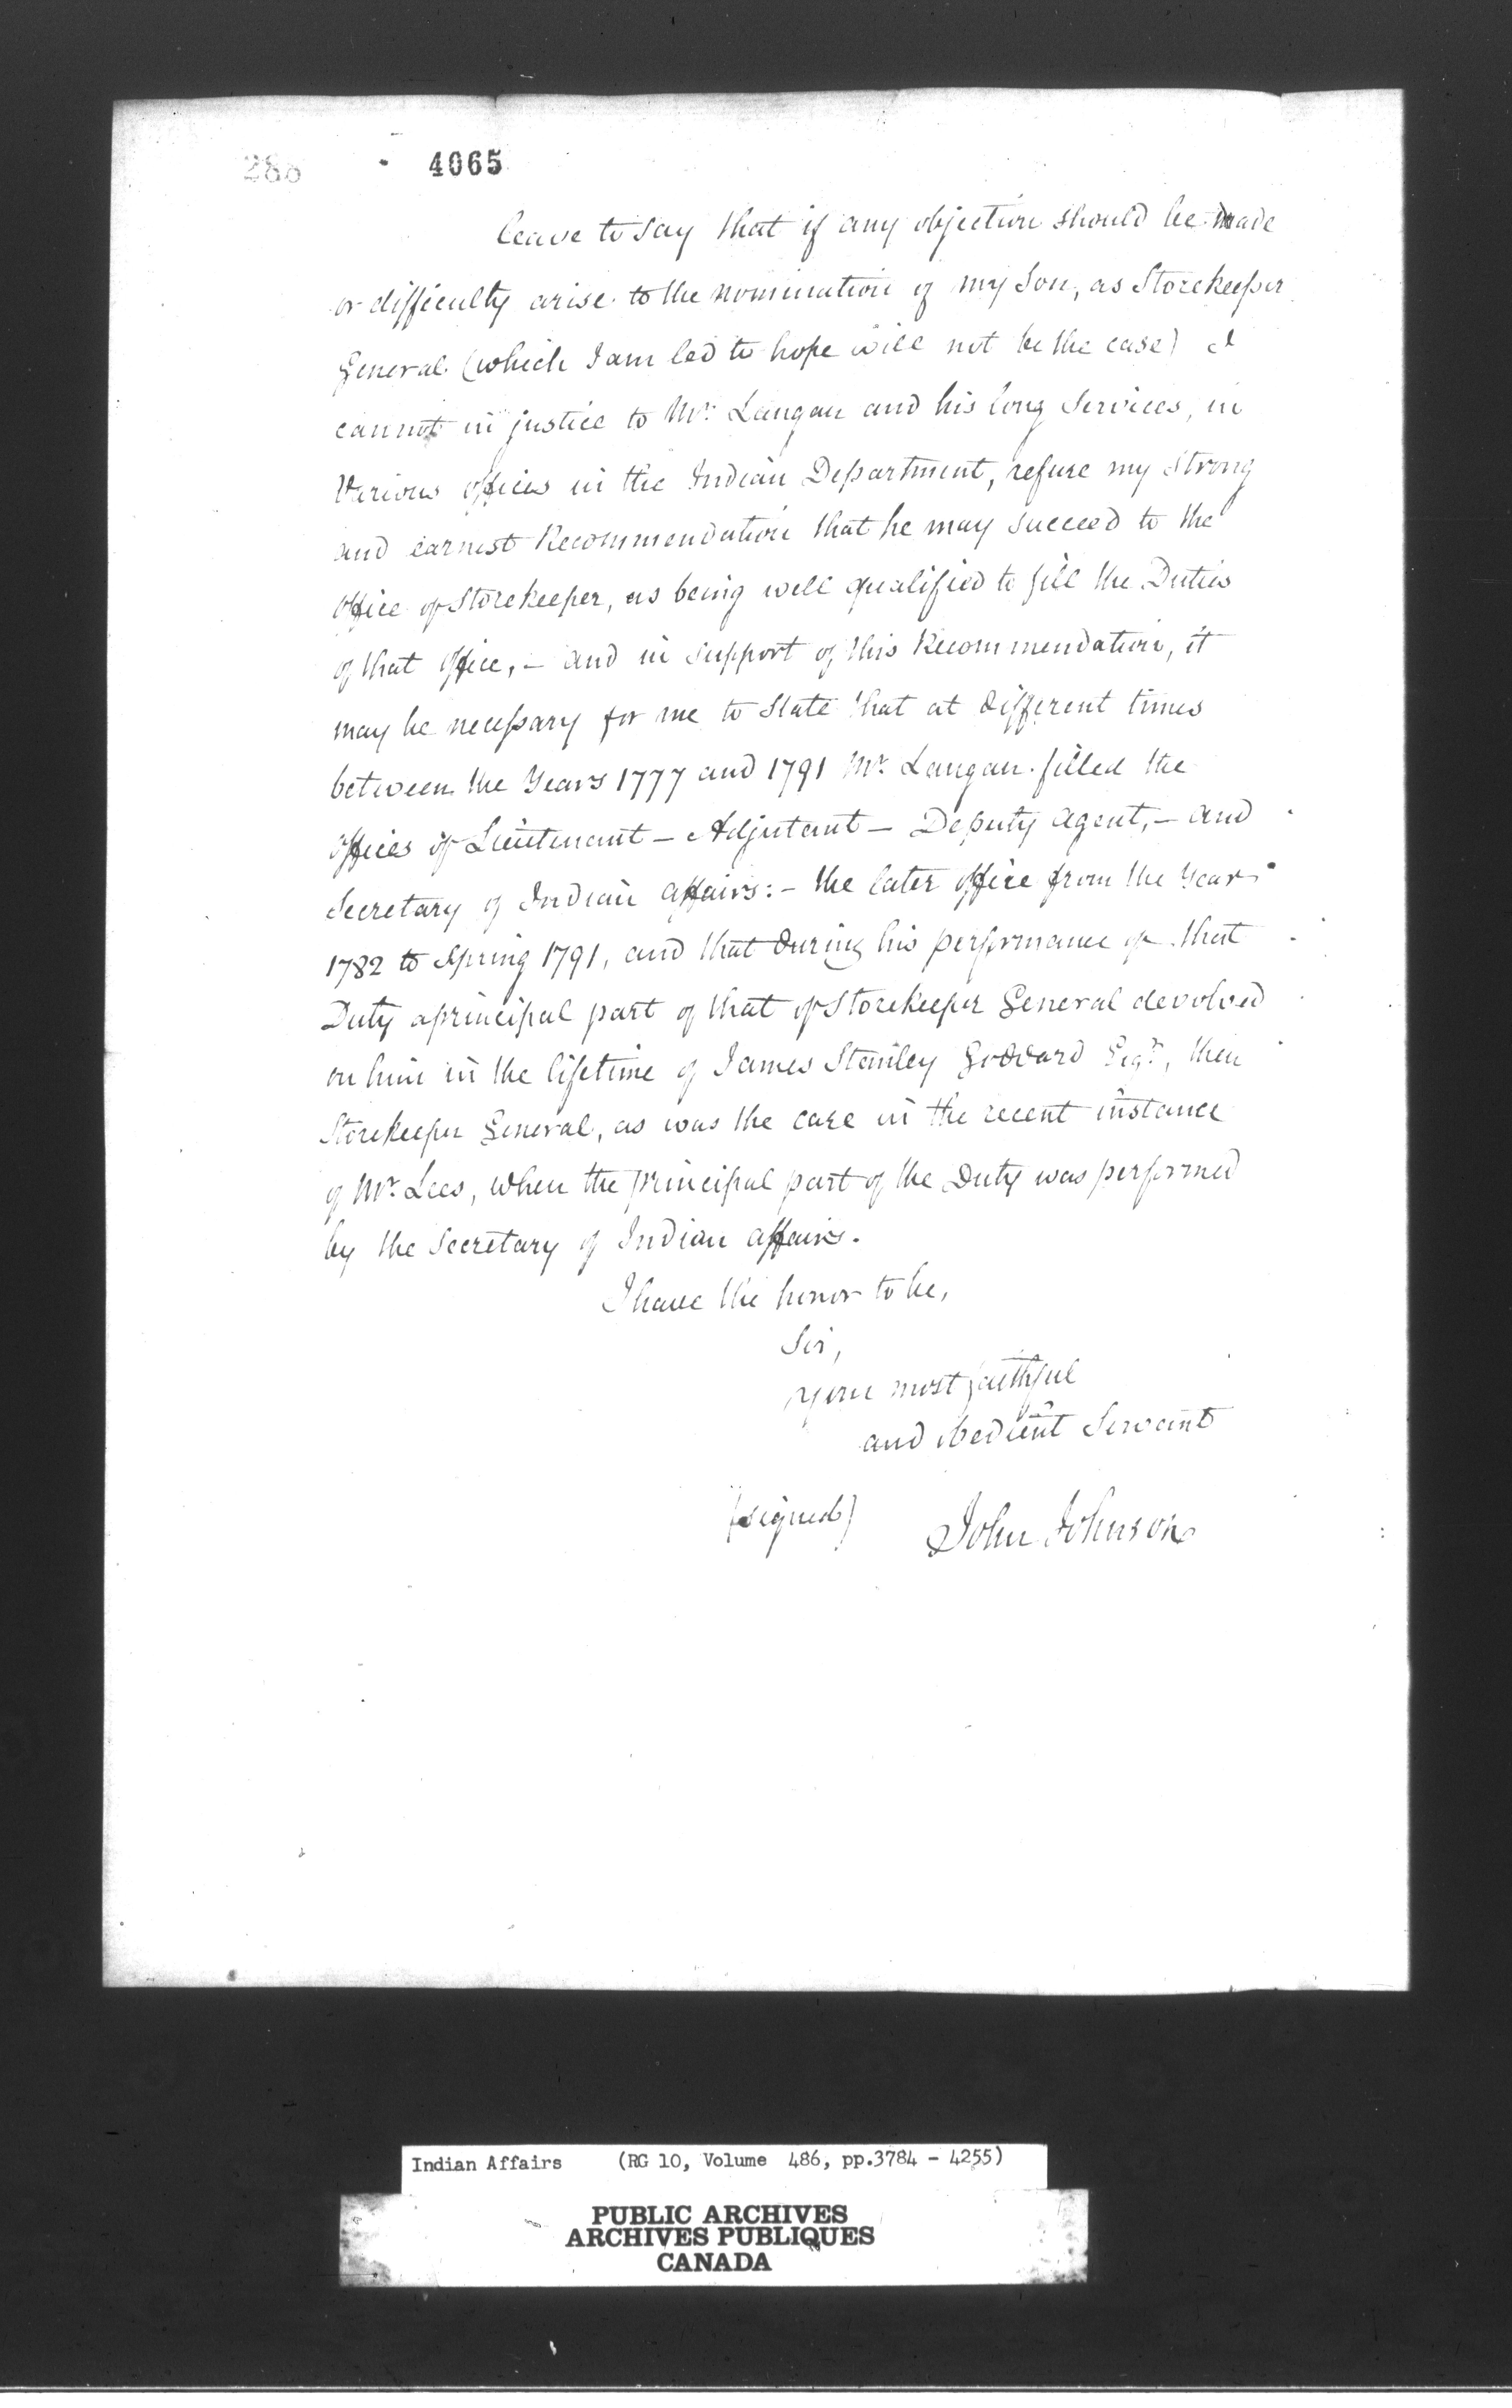 288 4065
leave to say that if any objection should be made
or difficulty arise to the nomination of my Son, as Storekeeper
General (which I am led to hope will not be the case) I
cannot in justice to Mr. Langan and his long Services, in
Various offices in the Indian Department, refuse my Strong
and earnest Recommendation that he may succeed to the
office of Storekeeper, as being well qualified to fill the Duties
of that office, - and in support of this Recommendation, it
may be necessary for me to State that at different times
between the Years 1777 and 1791 Mr. Langan filled the
offices of Lieutenant - Adjutant - Deputy Agent, - and
Secretary of Indian affairs: - the later office from the Year
1782 to Spring 1791, and that during his performance of that
Duty a principal part of that of Storekeeper General devolved
on him in the lifetime of James Stanley Goddard Esqr., then
Storekeeper General, as was the case in the recent instance
of Mr. Lees, when the principal part of the Duty was performed
by the Secretary of Indian affairs.
I have the honor to be,
Sir,
your most faithful
and obedient Servant
(signed) John Johnson
Indian Affairs (RG 10, Volume 486, pp.3784 - 4255)
PUBLIC ARCHIVES
ARCHIVES PUBLIQUES
CANADA